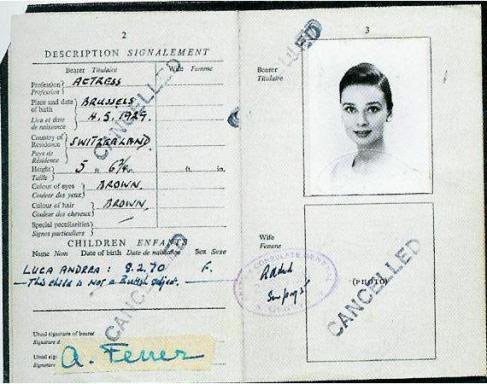 2
DESCRIPTION SIGNALEMENT
Bearer Titulaire
Wife Femme
Profession ACTRESS
Profession
Place and date of birth BRUSSELS
4.5.1929.
Lieu et date de naissance
Country of Residence SWITZERLAND
Pays de Résidence
Height 5 ft. 6¾ in.
ft. in.
Taille
Colour of eyes BROWN.
Couleur des yeux
Colour of hair BROWN.
Couleur des cheveux
Special peculiarities
Signes particuliers
CHILDREN ENFANTS
Name Nom Date of birth Date de naissance Sex Sexe
LUCA ANDREA : 8.2.70
This child is not a British subject.
Usual signature of bearer
Signature d
Usual sig
Signature
A. Ferrer
CANCELLED
CANCELLED
3
Bearer
Titulaire
Wife
Femme
(PHOTO)
CONSULATE GENERAL
CANCELLED